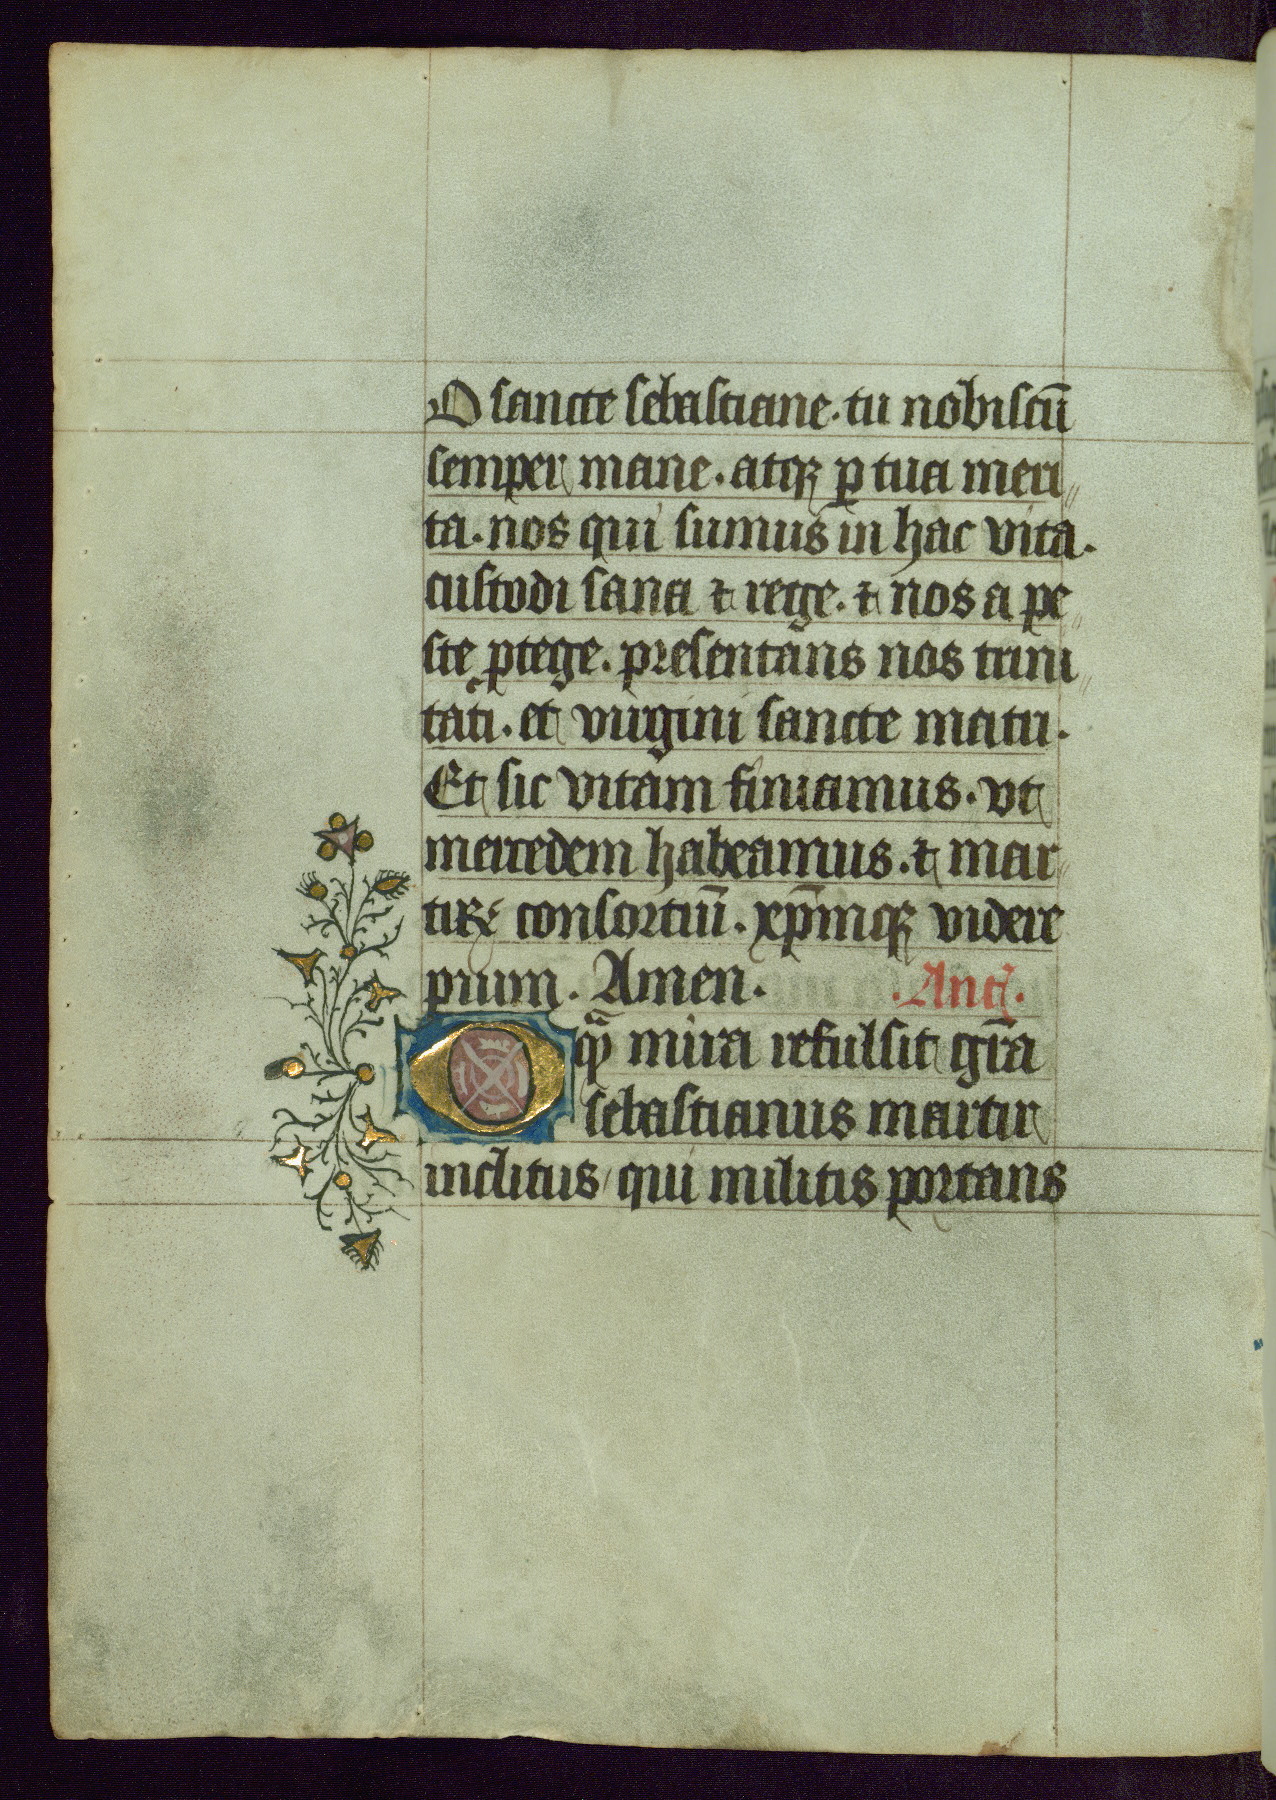 O sancte sebastiane. tu nobiscū
semper mane. atqꝫ ꝑ tua meri
ta. nos qui sumus in hac vita.
custodi sana ⁊ rege. ⁊ nos a pe
ste ꝓtege. presentans nos trini
tati. et virgini sancte matri.
Et sic vitam finiamus. vt
mercedem habeamus. ⁊ mar
tiꝝ consortiū. xp̄mqꝫ videre
pium. Amen. .Anͭ.
O qͣ̄ mira refulsit gr̄a
sebastianus martir
inclitus / qui militis portans